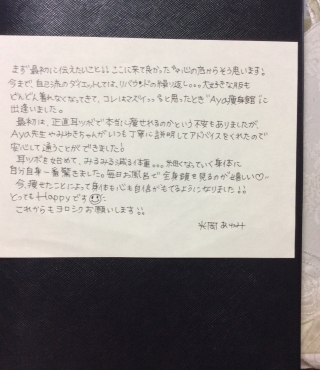 まず最初に伝えたいこと!! ここに来て良かった♡心の底からそう思います!
今まで、自己流のダイエットしては、リバウンドの繰り返し。。。大好きな服も
どんどん着れなくなってきて、コレはマズイっっと思ったとき"Aya痩身館"に
出逢いました。
最初は、正直耳ツボで本当に痩せれるのかという不安もありましたが、
Aya先生やみゆきちゃんがいつも丁寧に説明してアドバイスをくれたので
安心して通うことができました!
耳ツボを始めて、みるみる減る体重。。。細くなっていく身体に
自分自身一番驚きました。毎日お風呂で全身鏡を見るのが嬉しい♡。
今、痩せたことによって身体も心も自信がもてるようになりました!!
とってもHappyです
これからもヨロシクお願いします!!